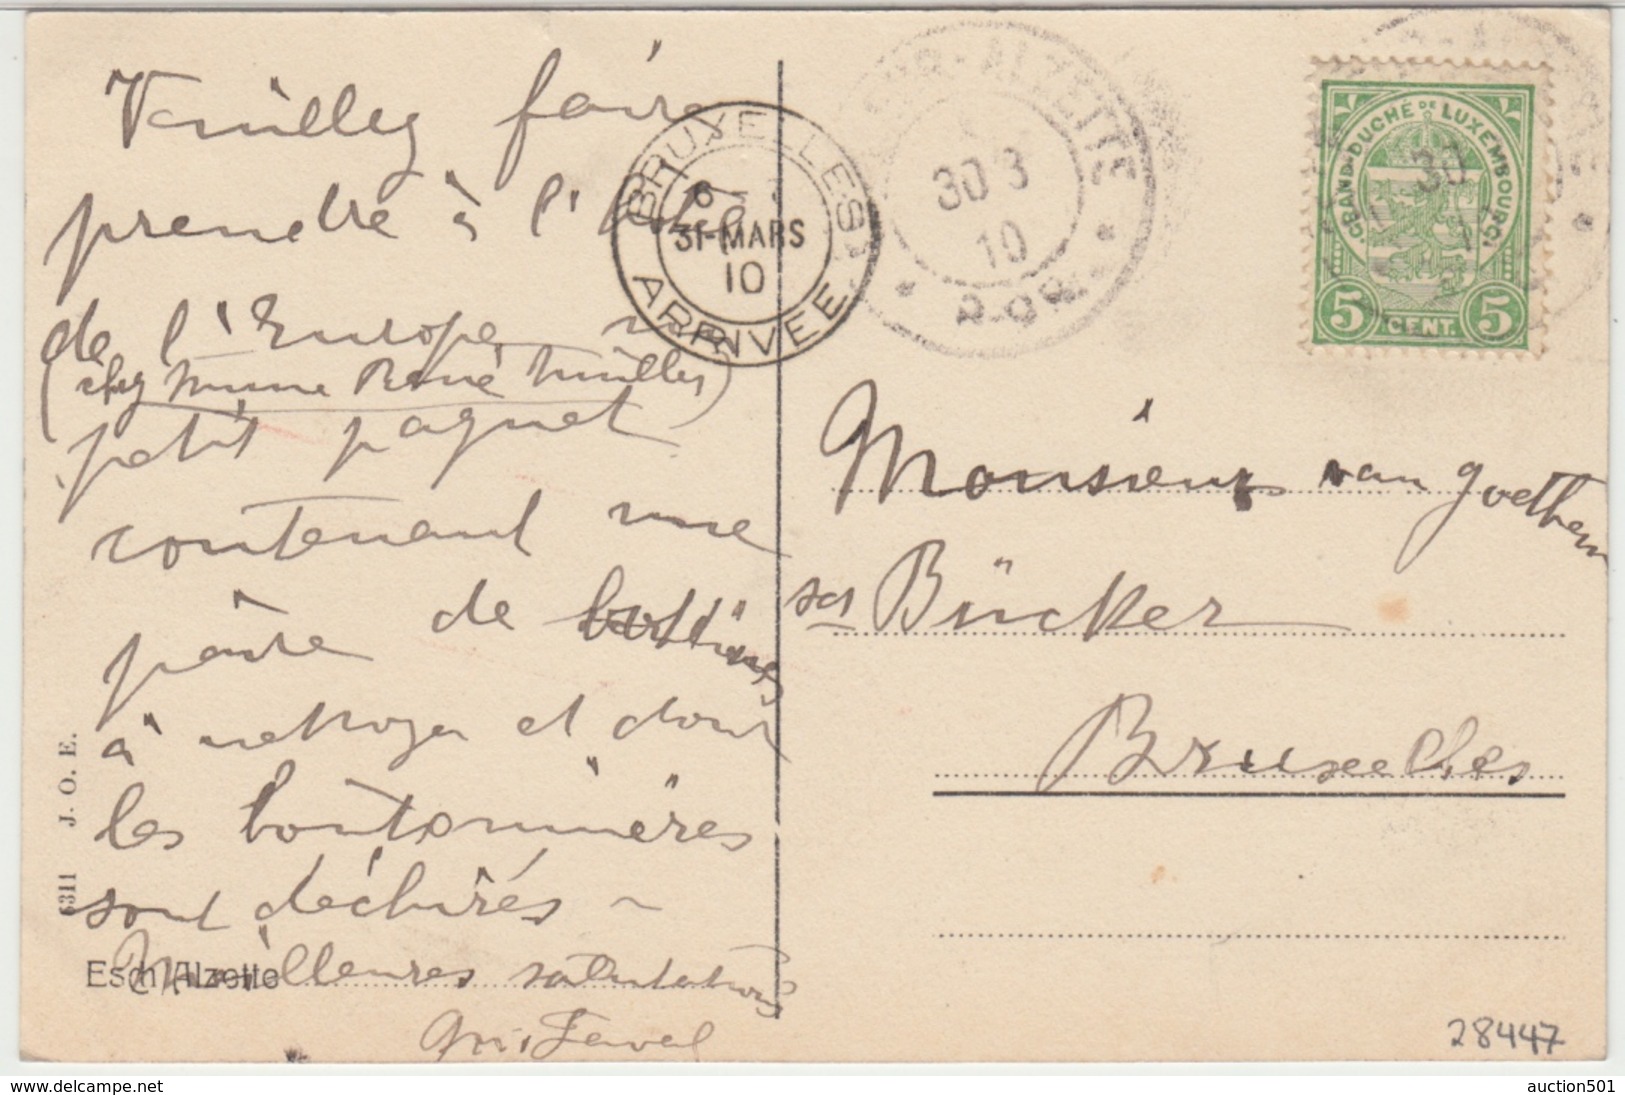 Veuillez faire
prendre à l'hôtel
de l'Europe, un
(chez Mme René Muller)
petit paquet
contenant une
paire de bottines
à nettoyer et dont
les boutonnières
sont déchirés ~
Meilleures salutations
Faval
6311 J. O. E.
Esch/Alzette
BRUXELLES
31-MARS
10
ARRIVEE
ALZETTE
30 3
10
GRAND-DUCHÉ DE LUXEMBOURG
30
5 CENT. 5
Monsieur van Goethem
Bücker
Bruxelles
28447
auction501
delcampe.net